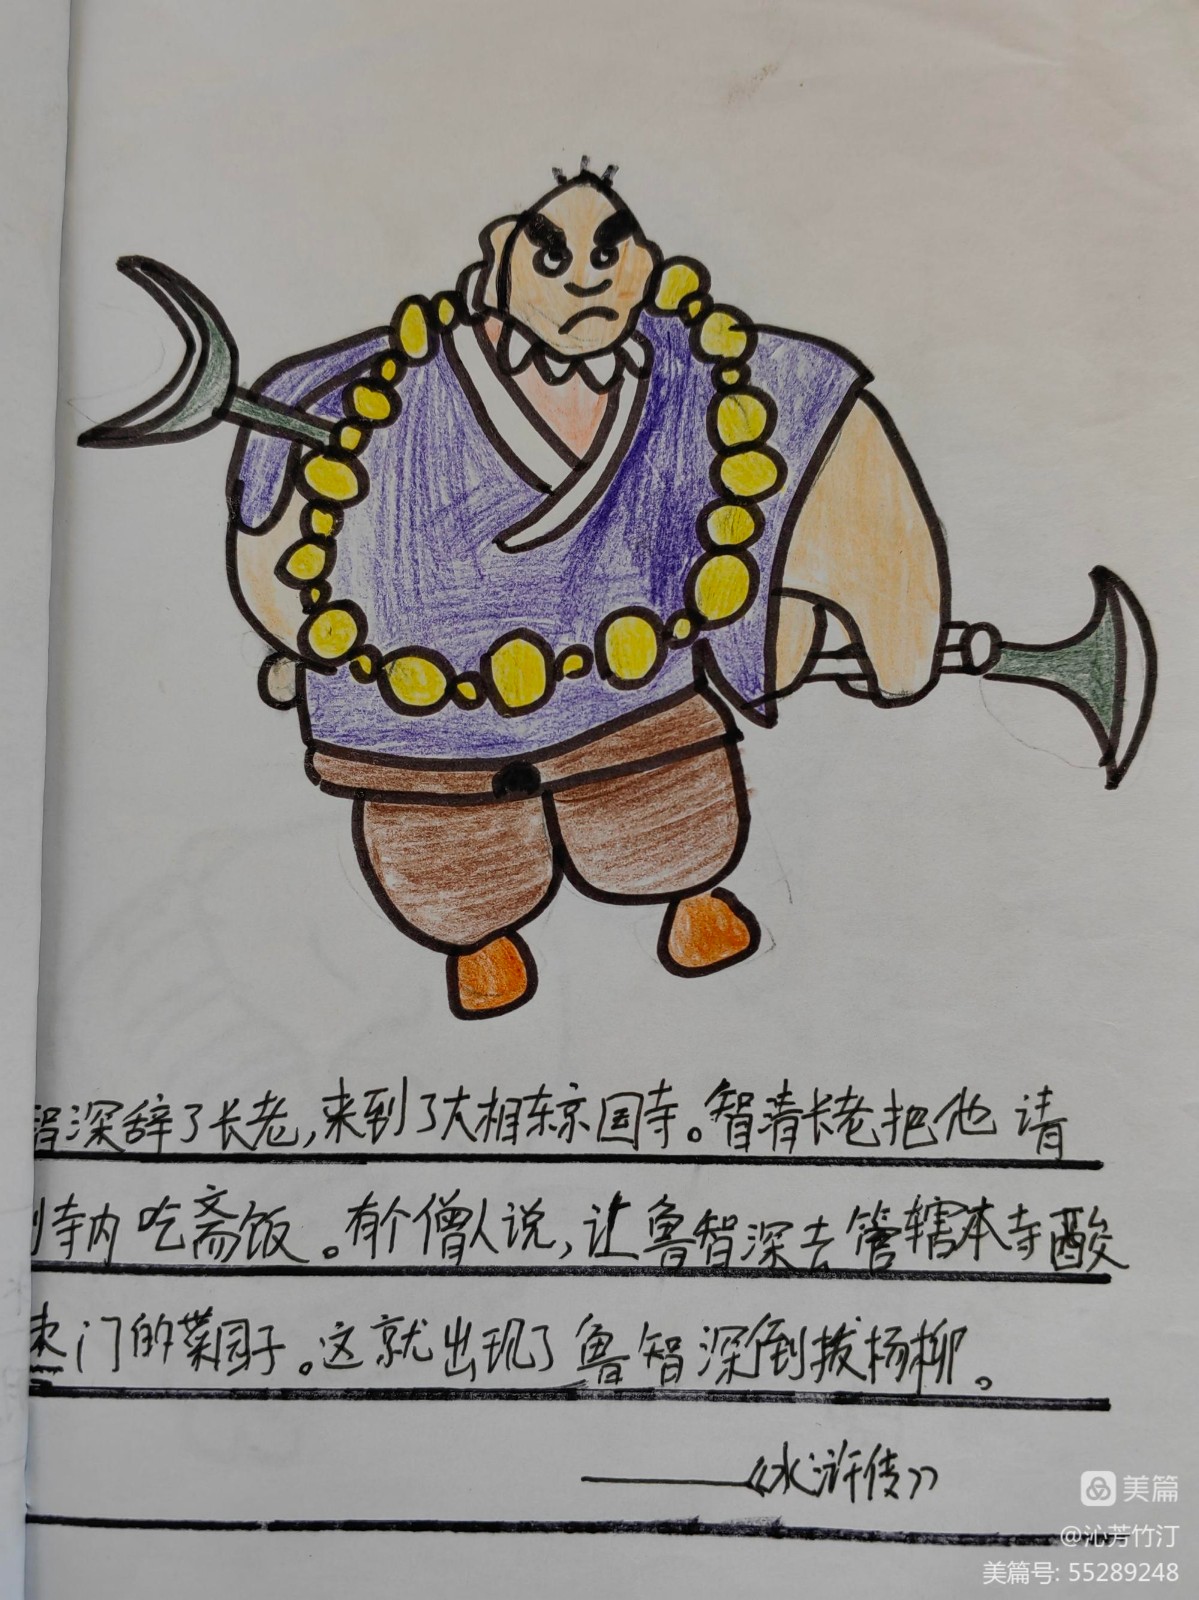 智深辞了长老,来到了大相东京国寺。智清长老把他请
到寺内吃斋饭。有个僧人说,让鲁智深去管辖本寺酸
枣门的菜园子。这就出现了鲁智深倒拔杨柳。
——《水浒传》
美篇
@沁芳竹汀
美篇号: 55289248